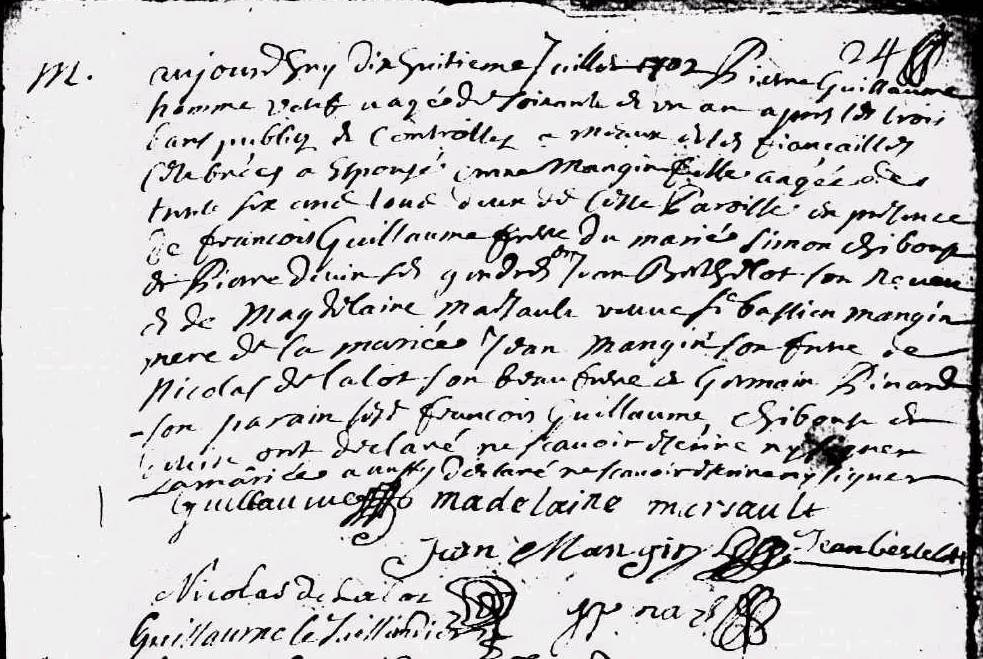 24
M. aujourdhuy dix huitieme Juillet 1702 Pierre Guillaume
homme veuf aagée de soixante et un an apres les trois
bans publiez et Controllez a et les fiancailles
Celebrées a Espousé anne Mangin fille aagée de
trente six ans tous deux de Cette Paroisse en presence
de francois Guillaume frere du mariée Simon Chiboust
et Pierre ses gendres Jean Berthelot son neveu
et de Magdelaine Marsault veuve sebastien mangin
mere de la mariée Jean Mangin son frere de
Nicolas de lalot son beau frere et Germain Pinard
son parain led francois Guillaume, Chiboust et
ont declaré ne scavoir Ecrire ny signer
La mariée a aussy Declaré ne scavoir Ecrire ny signer
guillaume madelaine mersault
Jean Mangin Jean bertelot
Nicolas de Lalot
Guillaume le